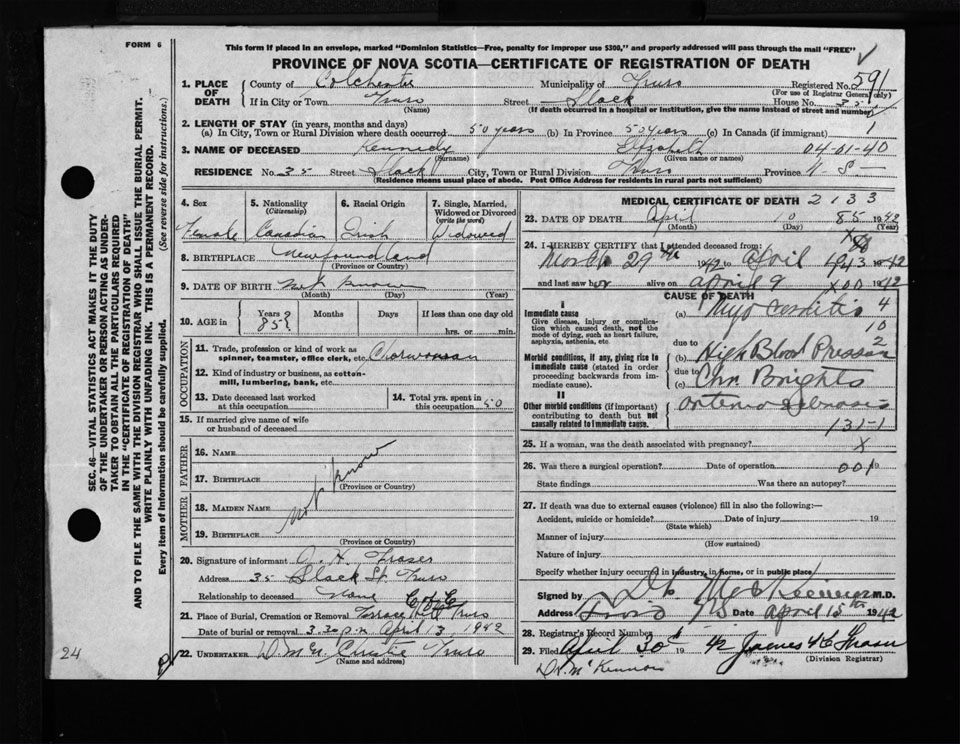 FORM 6
This form if placed in an envelope, marked "Dominion Statistics—Free, penalty for improper use $300," and properly addressed will pass through the mail "FREE"
PROVINCE OF NOVA SCOTIA—CERTIFICATE OF REGISTRATION OF DEATH
1. PLACE OF DEATH
County of Colchester Municipality of Truro Registered No. 591
(For use of Registrar General only)
If in City or Town Truro Street Black House No. 35
(Name) (If death occurred in a hospital or institution, give the name instead of street and number)
2. LENGTH OF STAY (in years, months and days)
(a) In City, Town or Rural Division where death occurred 50 years (b) In Province 50 years (c) In Canada (if immigrant) 1
3. NAME OF DECEASED Kennedy Elizabeth 04-01-40
(Surname) (Given name or names)
RESIDENCE No. 35 Street Black City, Town or Rural Division Truro Province N.S.
(Residence means usual place of abode. Post Office Address for residents in rural parts not sufficient)
4. Sex 5. Nationality (Citizenship) 6. Racial Origin 7. Single, Married, Widowed or Divorced (write the word)
Female Canadian Irish Widowed
8. BIRTHPLACE Newfoundland
(Province or Country)
9. DATE OF BIRTH Not known
(Month) (Day) (Year)
10. AGE in Years Months Days If less than one day old
85? hrs. or min.
OCCUPATION
11. Trade, profession or kind of work as spinner, teamster, office clerk, etc. Charwoman
12. Kind of industry or business, as cotton-mill, lumbering, bank, etc.
13. Date deceased last worked at this occupation 14. Total yrs. spent in this occupation 50
15. If married give name of wife or husband of deceased
FATHER
16. NAME
17. BIRTHPLACE
(Province or Country)
not know
MOTHER
18. MAIDEN NAME
19. BIRTHPLACE
(Province or Country)
20. Signature of informant Fraser
Address 35 Black St. Truro
Relationship to deceased None
21. Place of Burial, Cremation or Removal Terrace Hill Truro
C of E
Date of burial or removal 3.30 P.M. April 13 1942
22. UNDERTAKER Christie Truro
(Name and address)
MEDICAL CERTIFICATE OF DEATH 2133
23. DATE OF DEATH April 10 85 1942
(Month) (Day) (Year)
24. I HEREBY CERTIFY that I attended deceased from:
March 29th 1942 to April 1942
and last saw her alive on April 9 X00 1942
CAUSE OF DEATH
I
Immediate cause
Give disease, injury or complication which caused death, not the mode of dying, such as heart failure, asphyxia, asthenia, etc.
(a) Myocarditis 4
10
due to 2
Morbid conditions, if any, giving rise to immediate cause (stated in order proceeding backwards from immediate cause).
(b) High Blood Pressure
due to
(c) Chr Brights
II
Other morbid conditions (if important) contributing to death but not causally related to immediate cause.
131-1
25. If a woman, was the death associated with pregnancy? X
26. Was there a surgical operation? Date of operation 001 19
State findings Was there an autopsy?
27. If death was due to external causes (violence) fill in also the following:—
Accident, suicide or homicide? Date of injury 19
(State which)
Manner of injury
(How sustained)
Nature of injury
Specify whether injury occurred in industry, in home, or in public place
Signed by M.D.
Address Truro NS Date April 15th 1942
28. Registrar's Record Number
29. Filed April 30 1942 James
(Division Registrar)
SEC. 46—VITAL STATISTICS ACT MAKES IT THE DUTY OF THE UNDERTAKER OR PERSON ACTING AS UNDERTAKER TO OBTAIN ALL THE PARTICULARS REQUIRED IN THE "CERTIFICATE OF REGISTRATION OF DEATH" AND TO FILE THE SAME WITH THE DIVISION REGISTRAR WHO SHALL ISSUE THE BURIAL PERMIT.
WRITE PLAINLY WITH UNFADING INK. THIS IS A PERMANENT RECORD.
Every item of information should be carefully supplied. (See reverse side for instructions.)
24